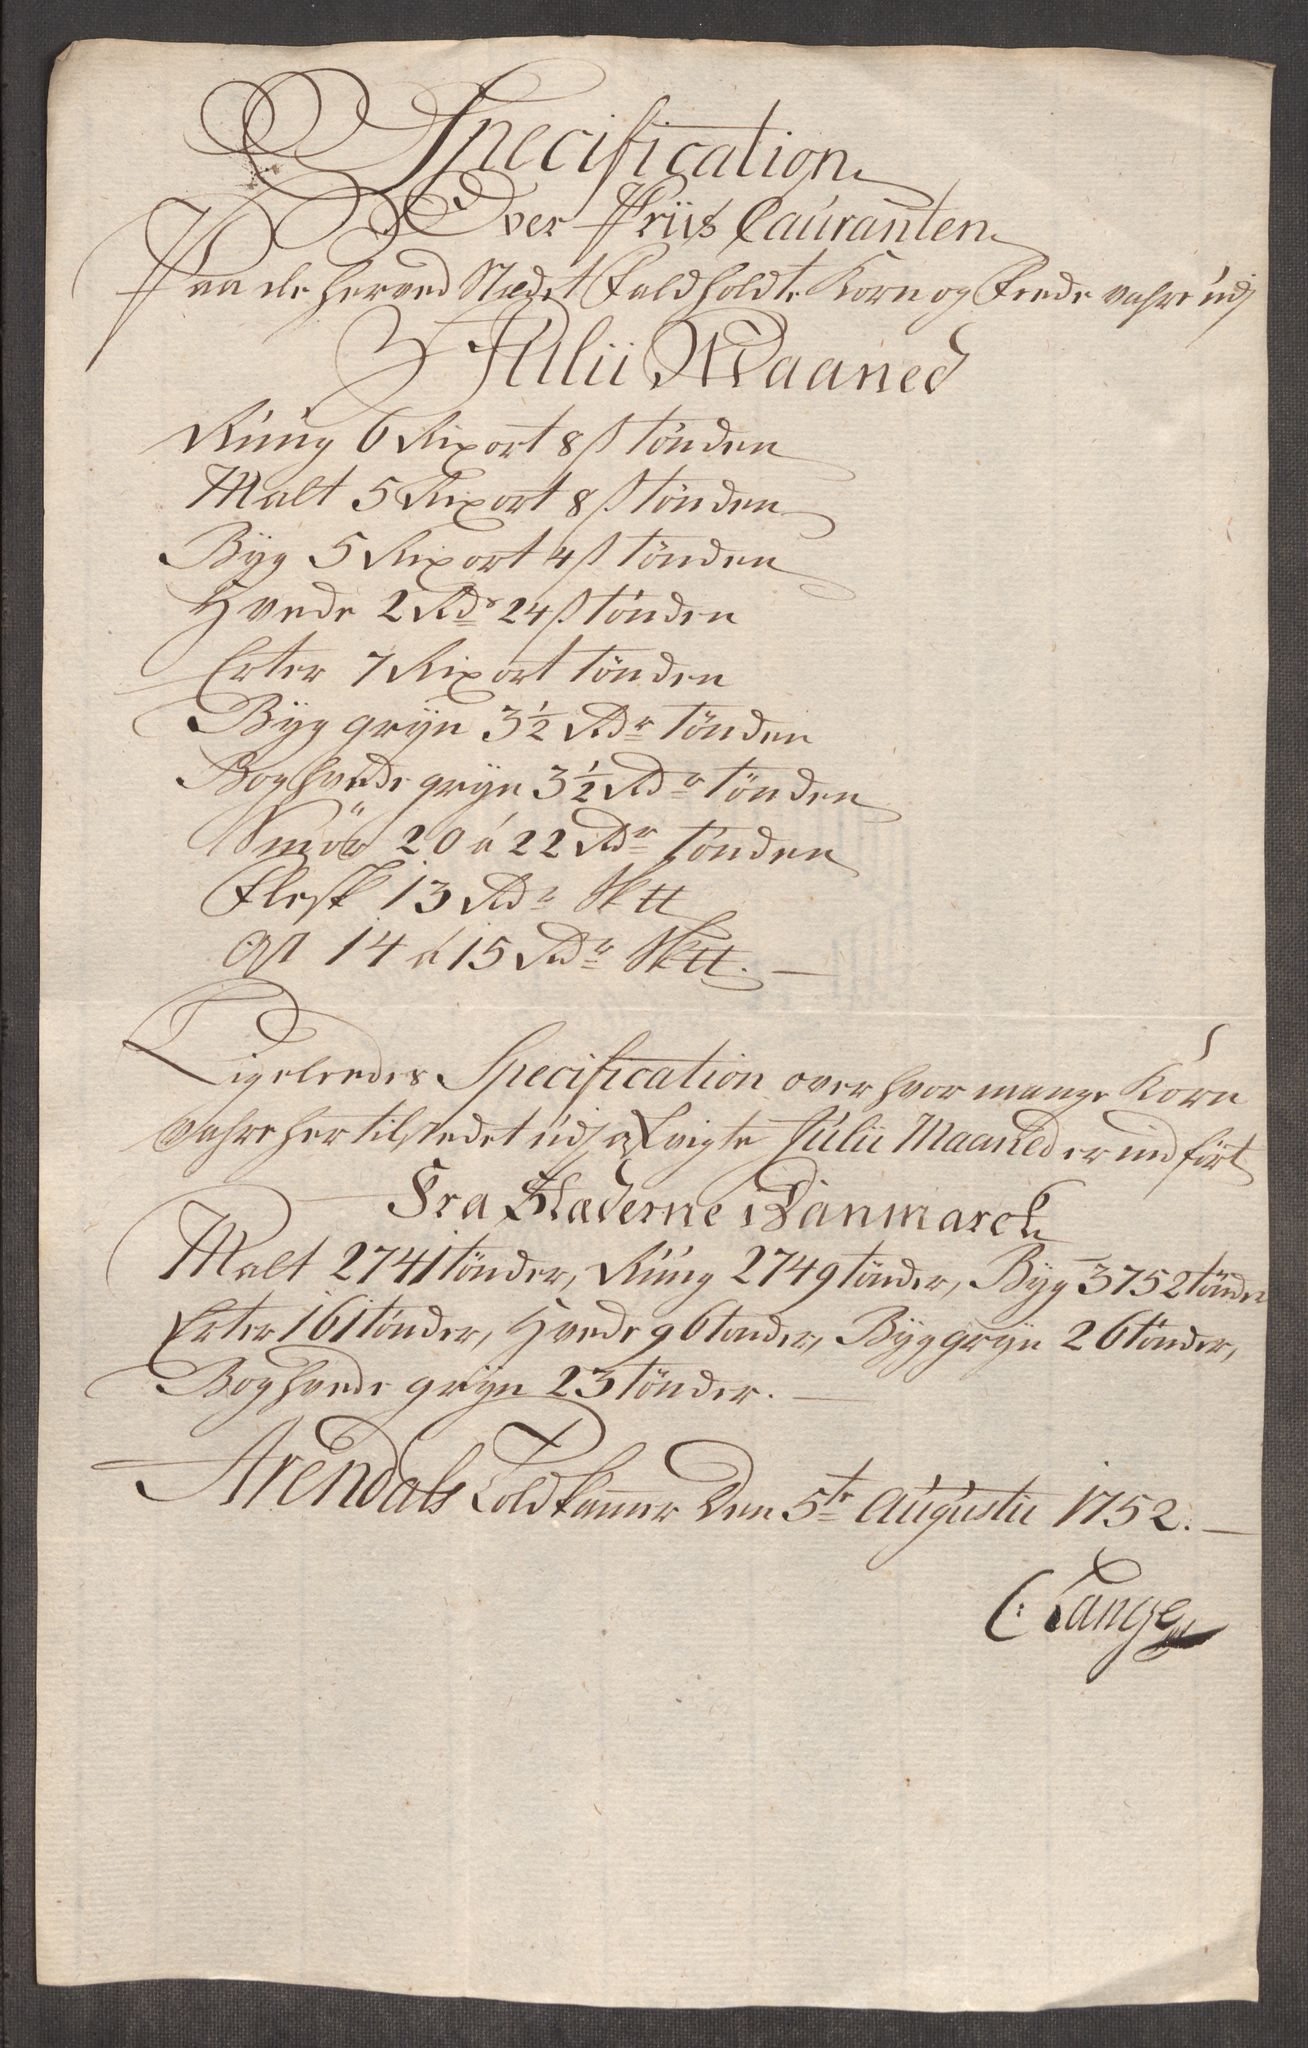 Specification
Over Priis Couranten
Paa de herved Stædet Faldholdte Korn og Feede vahre udj
Julii Maaned
Rúúg 6 Rixort 8 ß tönden
Malt 5 Rixort 8 ß tönden
Byg 5 Rixort 4 ß tönden
Hvede 2 Rdr 24 ß tönden
Erter 7 Rixort tönden
Byg gryn 3½ Rdr tönden
Boghvede gryn 3½ Rdr tönden
Smör 20 á 22 Rdr tönden
Flesk 13 Rdr Sktt
Ost 14 á 15 Rdr Sktt. —
Ligeleedes Specification over hvor mange Korn
vahre her til stedet udj Julii Maaned er ind fört
Fra Stæderne i Danmarck
Malt 2741 tönder, Rúúg 2749 tönder, Byg 3752 tönder
Erter 161 tönder, Hvede 96 tönder, Byg gryn 26 tönder,
Boghvede gryn 23 tönder. —
Arendals Toldkamer Den 5te Augustii 1752. —
C: Lange